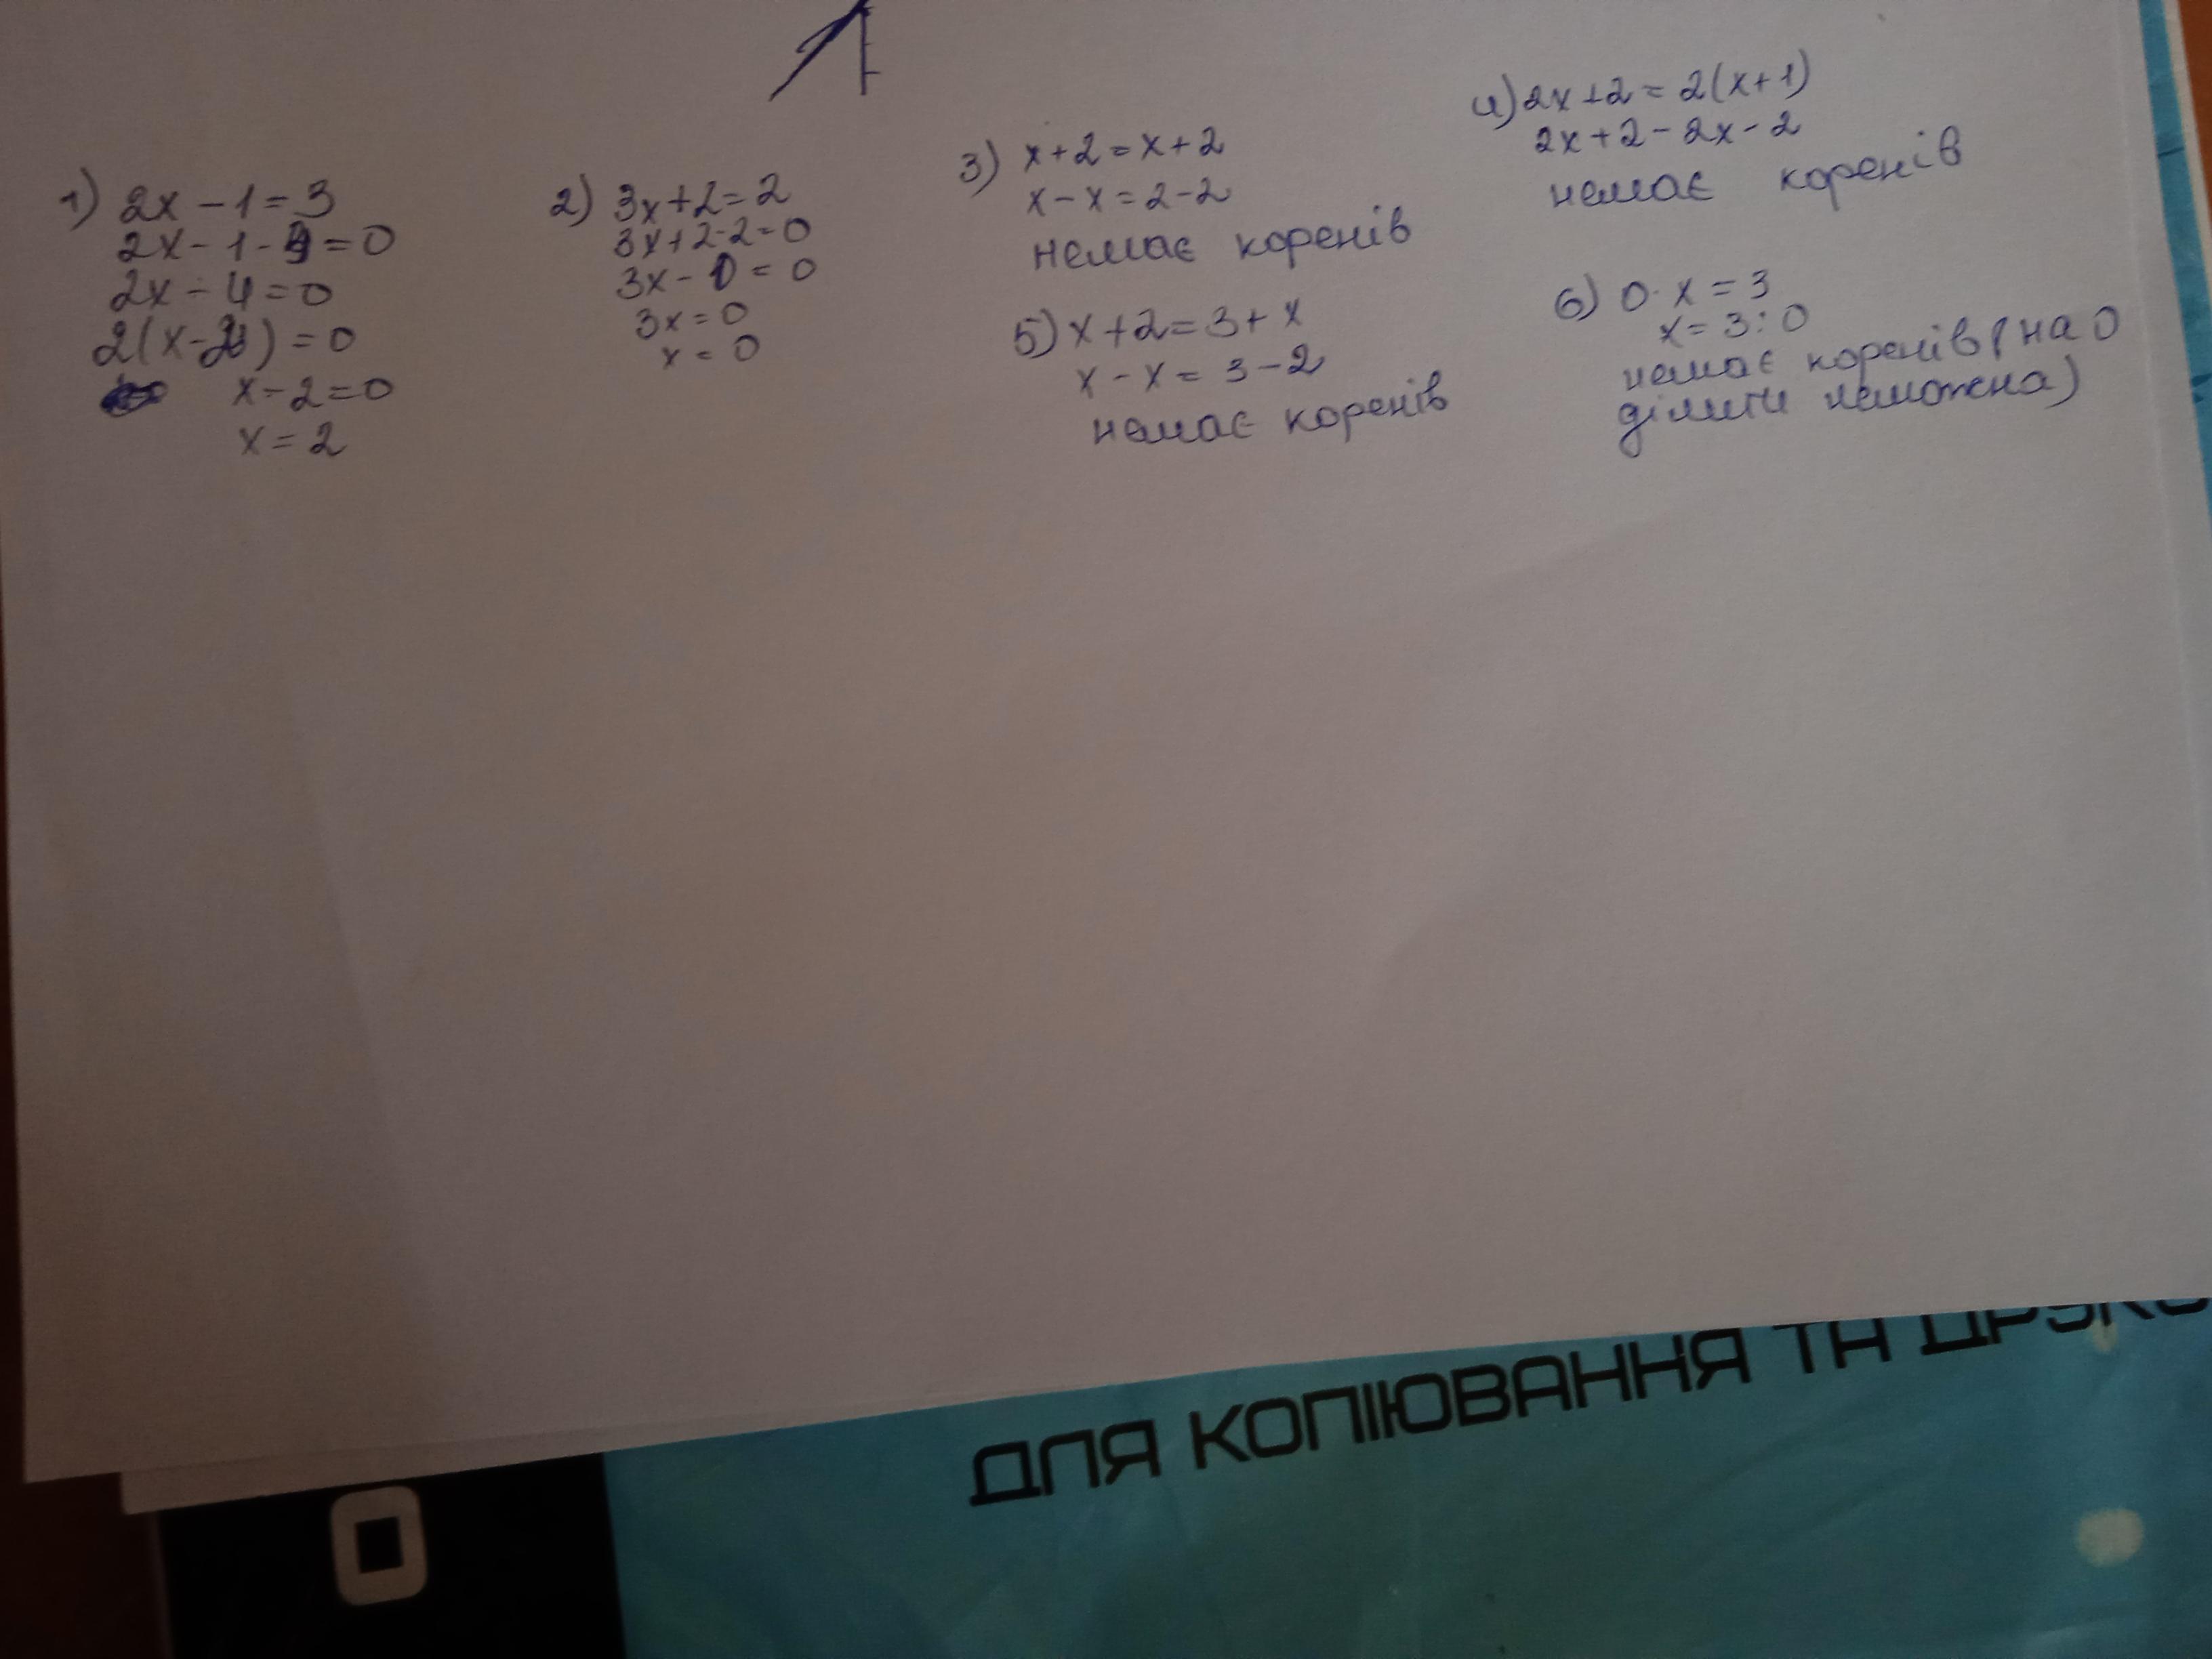 1) 2x - 1 = 3
2x - 1 - 3 = 0
2x - 4 = 0
2(x - 2) = 0
x - 2 = 0
x = 2
2) 3x + 2 = 2
3x + 2 - 2 = 0
3x - 0 = 0
3x = 0
x = 0
3) x + 2 = x + 2
x - x = 2 - 2
немає коренів
4) 2x + 2 = 2(x + 1)
2x + 2 - 2x - 2
немає коренів
5) x + 2 = 3 + x
x - x = 3 - 2
немає коренів
6) 0 · x = 3
x = 3 : 0
немає коренів (на 0
ділити неможна)
ДЛЯ КОПІЮВАННЯ ТА